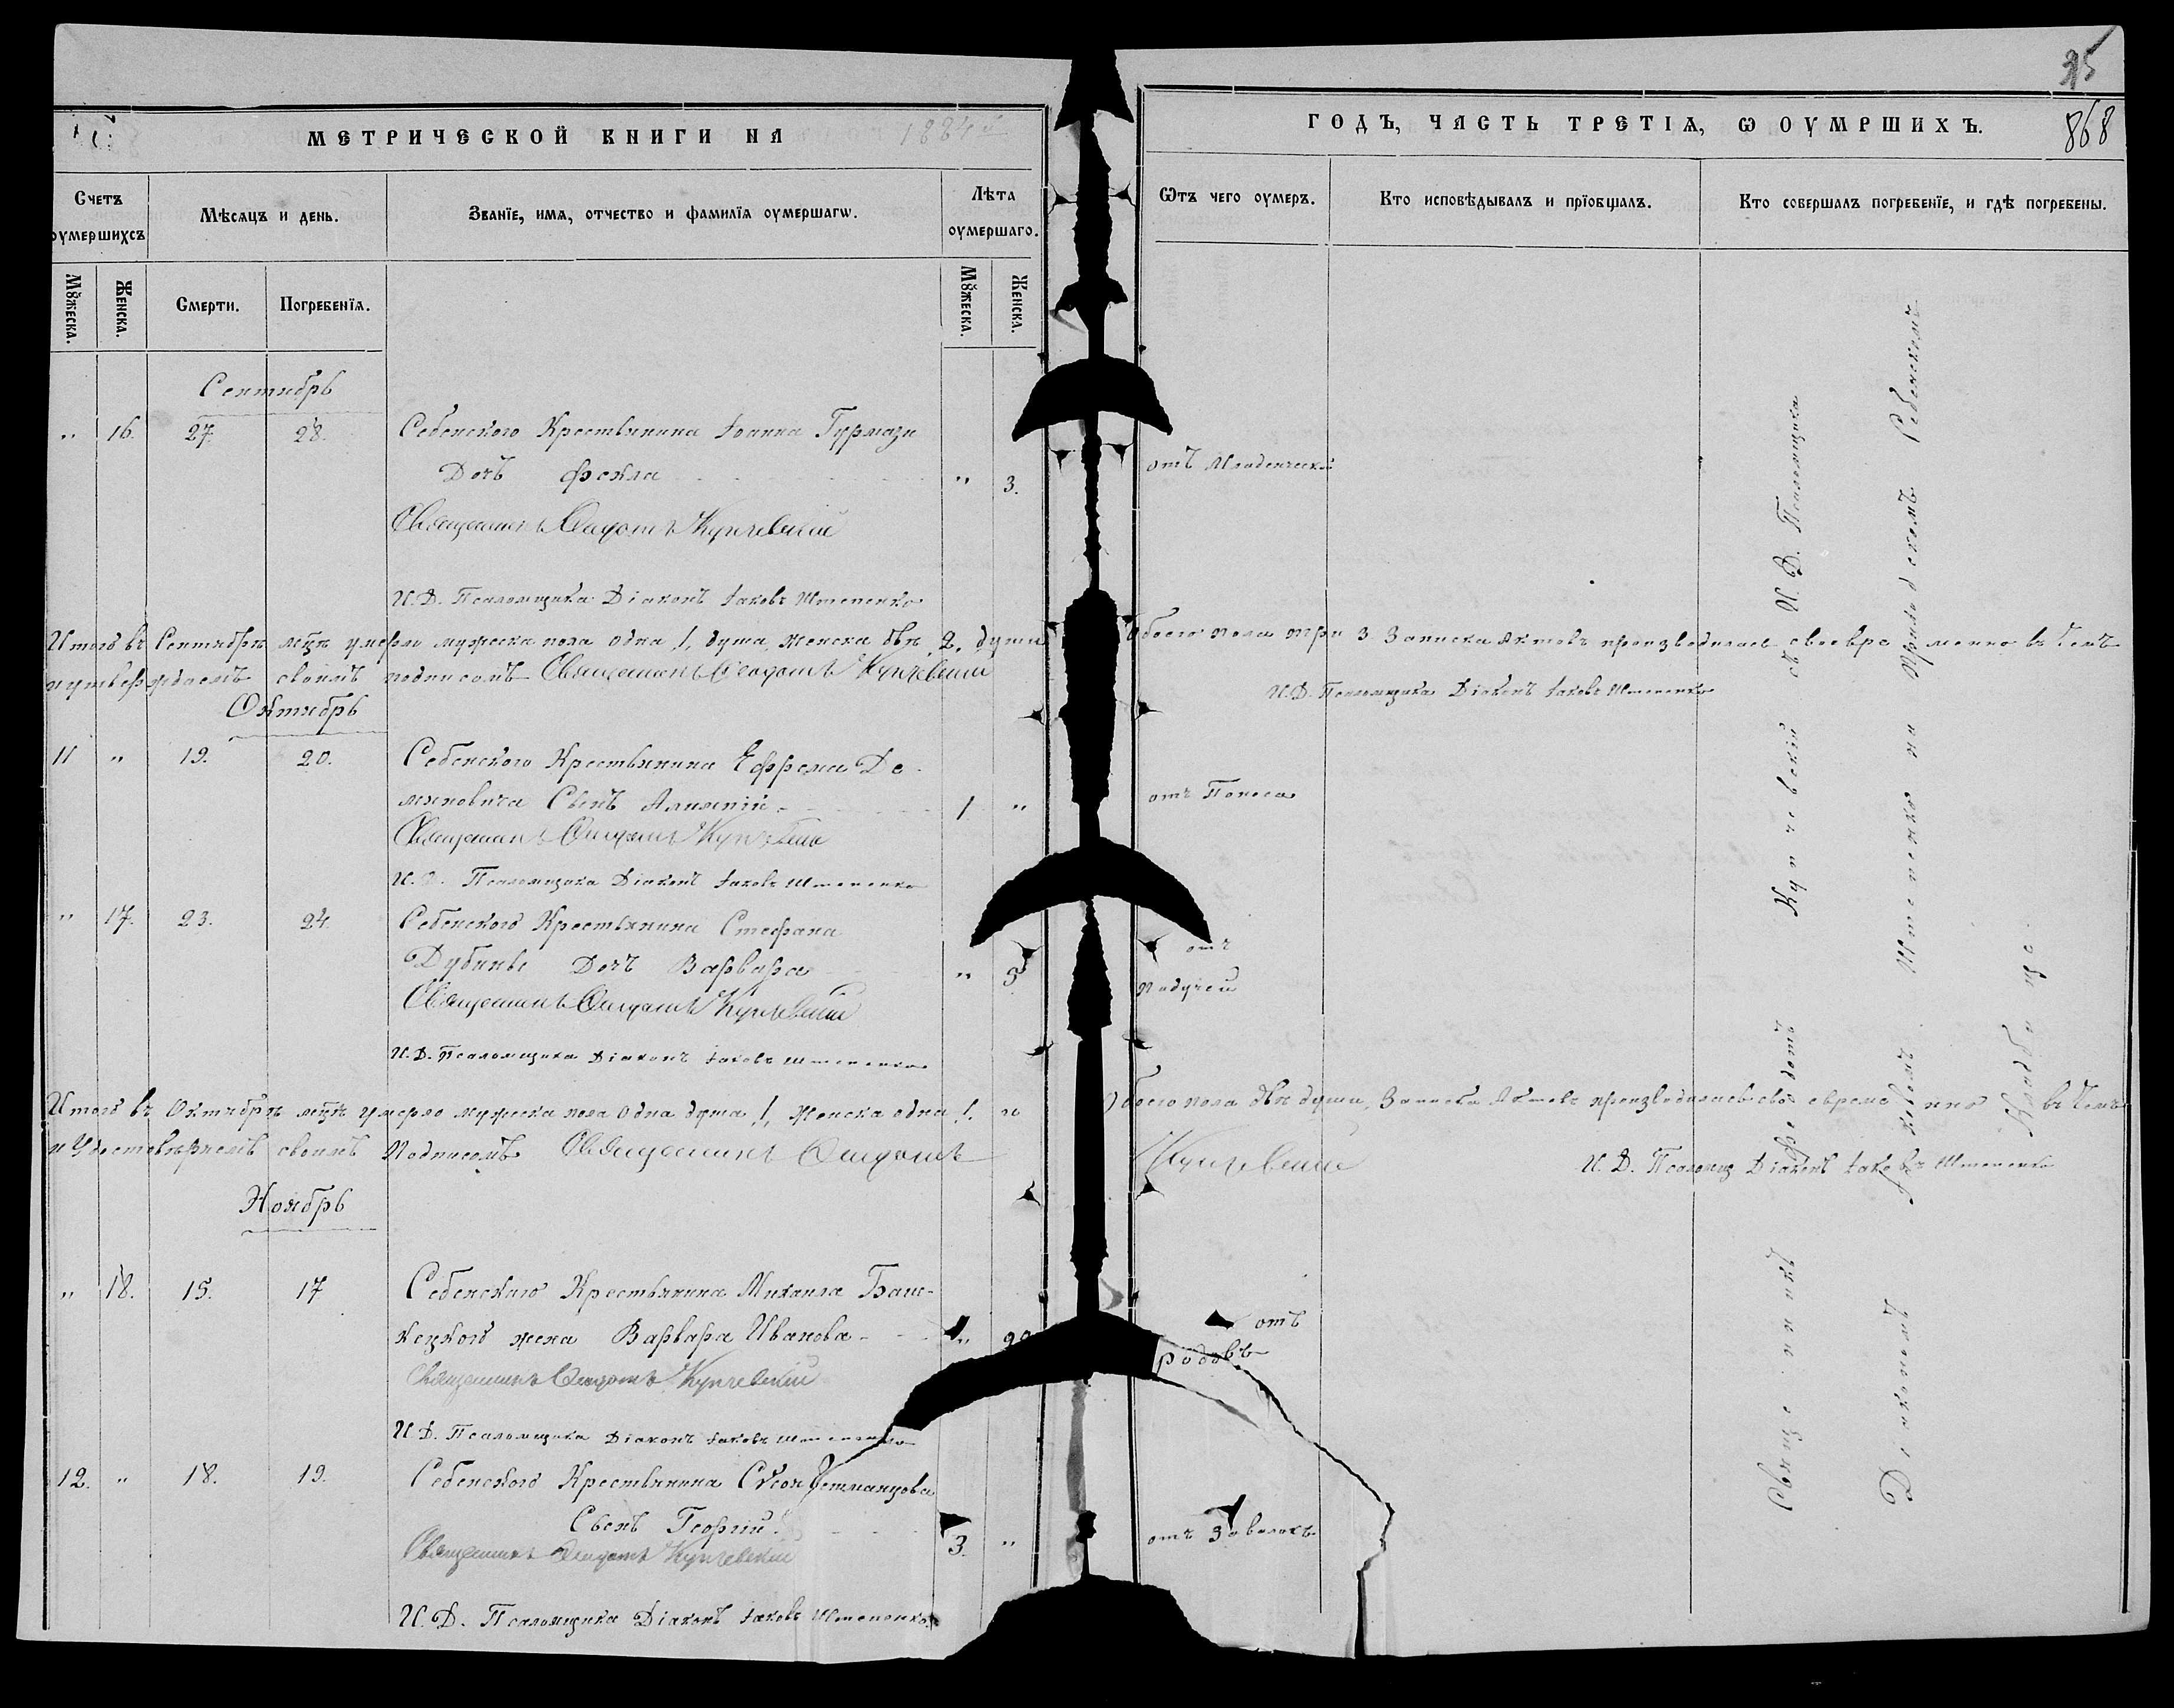 35
МЕТРИЧЕСКОЙ КНИГИ НА 1884 й
ГОДЪ, ЧАСТЬ ТРЕТІѦ, Ѡ ОУМРШИХЪ.
868
Счетъ оумершихсъ
Мѣсѧцъ и день.
Званїе, имѧ, отчество и фамилїѧ оумершагѡ.
Лѣта оумершаго.
Ѿтъ чего оумеръ.
Кто исповѣдывалъ и прїобщалъ.
Кто совершалъ погребенїе, и гдѣ погребены.
Мꙋжеска.
Женска.
Смерти.
Погребенїѧ.
Мꙋжеска.
Женска.
Сентябрь
" 16. 27. 28. Себенского Крестьянина Іоанна Гурмази
Дочь Фекла " 3. отъ Младенческой
Священникъ Феодотъ Купчевскій
И.Д. Псаломщика Діаконъ Іаковъ Штепенко
Итого въ Сентябрѣ м҃цѣ умерло мужеска пола одна 1, душа, женска двѣ 2, души обоего пола три 3 Записка Актовъ производилась своевременно въ чемъ
и утверждаемъ своимъ подписомъ Священникъ Феодотъ Купчевскій
И.Д. Псаломщика Діаконъ Іаковъ Штепенко
Октябрь
11 " 19. 20. Себенского Крестьянина Ефрема Де-
мяновича Сынъ Алимпій 1 " отъ Поноса
Священникъ Феодотъ Купчевскій
И.Д. Псаломщика Діаконъ Іаковъ Штепенко
" 17. 23. 24. Себенского Крестьянина Стефана
Дубины Дочь Варвара " 5 отъ
падучей
Священникъ Феодотъ Купчевскій
И.Д. Псаломщика Діаконъ Іаковъ Штепенко
Итого въ Октябрѣ м҃цѣ умерло мужеска пола одна душа 1, Женска одна 1. и Обоего пола двѣ души, Записка Актовъ производилась своевременно въ чемъ
и Удостовѣряемъ своимъ Подписомъ Священникъ Феодотъ Купчевскій
И.Д. Псаломщ Діаконъ Іаковъ Штепенко
Ноябрь
" 18. 15. 17 Себенского Крестьянина Михаила Баш-
нецкого жена Варвара Иванова " отъ
родовъ
Священникъ Феодотъ Купчевскій
И.Д. Псаломщика Діаконъ Іаковъ Штепенко
12. " 18. 19. Себенского Крестьянина
Сынъ Георгій 3. " отъ Заволокъ
Священникъ Феодотъ Купчевскій
И.Д. Псаломщика Діаконъ Іаковъ Штепенко
Священникъ Феодотъ Купчевскій съ И.Д. Псаломщика
Діакономъ Іаковомъ Штепенко на Приходскомъ Себенскомъ
Кладбище.